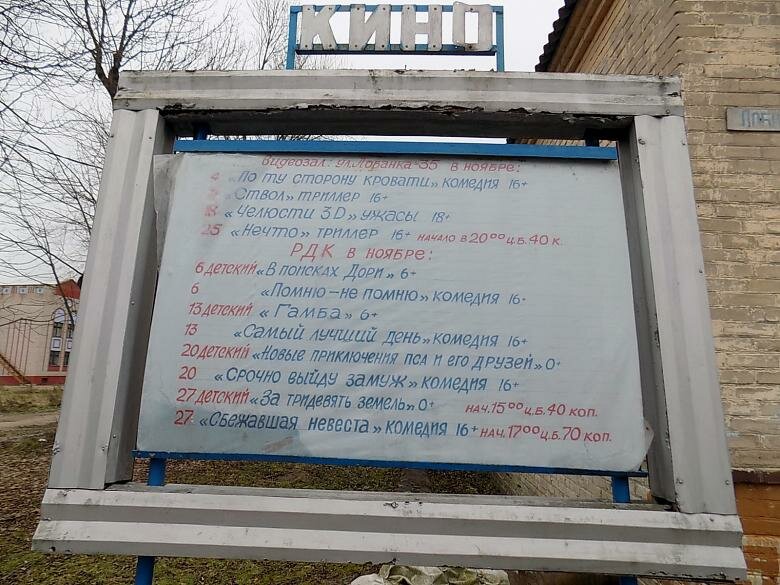 КИНО
Видеозал: ул.Лобанка-35 в ноябре:
4 «По ту сторону кровати» комедия 16+
«Ствол» триллер 16+
18 «Челюсти 3D» ужасы 18+
25 «Нечто» триллер 16+ начало в 20⁰⁰ ц.б. 40 к.
РДК в ноябре:
6 детский «В поисках Дори» 6+
6 «Помню-не помню» комедия 16+
13 детский «Гамба» 6+
13 «Самый лучший день» комедия 16+
20 детский «Новые приключения пса и его друзей» 0+
20 «Срочно выйду замуж» комедия 16+
27 детский «За тридевять земель» 0+ нач. 15⁰⁰ ц.б. 40 коп.
27 «Сбежавшая невеста» комедия 16+ нач. 17⁰⁰ ц.б. 70 коп.